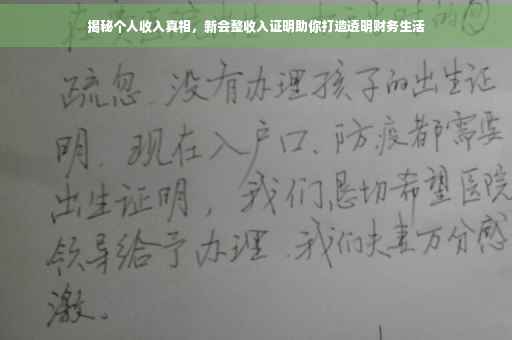 揭秘个人收入真相，新会整收入证明助你打造透明财务生活
疏忽、没有办理孩子的出生证
明、现在入户口、防疫都需要
出生证明，我们恳切希望医院
领导给予办理、我们夫妻万分感
激。